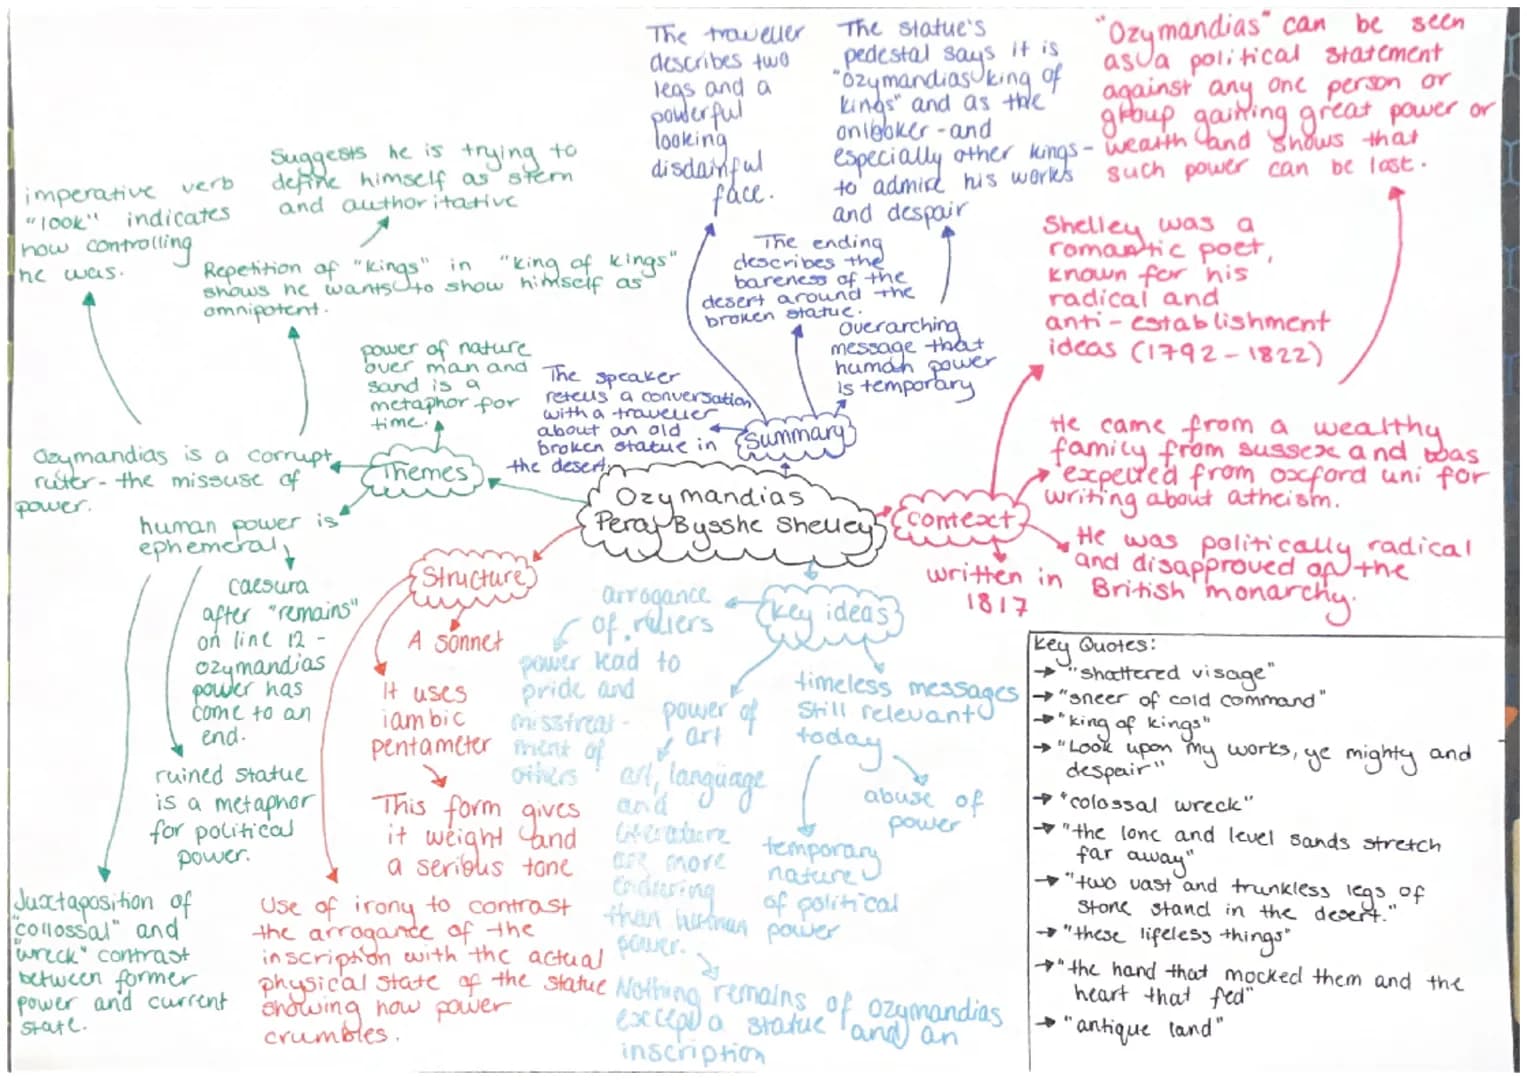 Ozymandias
Percy Bysshe Shelley
Summary
The speaker
retells a conversation
with a traveller
about an old
broken statue in
the desert.
The traveller
describes two
legs and a
powerful
looking
disdainful
face.
The ending
describes the
bareness of the
desert around the
broken statue.
The statue's
pedestal says it is
"Ozymandias king of
kings" and as the
onlooker - and
especially other kings -
to admire his works
and despair
overarching
message that
human power
is temporary
Context
Shelley was a
romantic poet,
known for his
radical and
anti-establishment
ideas (1792-1822)
"Ozymandias" can be seen
as a political statement
against any one person or
group gaining great power or
wealth and shows that
such power can be lost.
He came from a wealthy
family from sussex and was
expelled from oxford uni for
writing about atheism.
He was politically radical
and disapproved of the
British monarchy.
written in
1817
Key ideas
arrogance
of rulers
power lead to
pride and
misstreat-
ment of
others
power of
art
art, language
and
literature
are more
enduring
than human
power.
Nothing remains of ozymandias
except a statue and an
inscription
timeless messages
still relevant
today
temporary
nature
of political
power
abuse of
power
Structure
A sonnet
It uses
iambic
pentameter
This form gives
it weight and
a serious tone
Use of irony to contrast
the arrogance of the
inscription with the actual
physical state of the statue
showing how power
crumbles.
Themes
power of nature
over man and
sand is a
metaphor for
time.
Ozymandias is a corrupt
ruler - the missuse of
power.
imperative verb
"look" indicates
how controlling
he was.
Repetition of "kings" in "king of kings"
shows he wants to show himself as
omnipotent.
Suggests he is trying to
define himself as stern
and authoritative
human power is
ephemeral
caesura
after "remains"
on line 12 -
ozymandias
power has
come to an
end.
ruined statue
is a metaphor
for political
power.
Juxtaposition of
"collossal" and
"wreck" contrast
between former
power and current
state.
Key Quotes:
→ "shattered visage"
→ "sneer of cold command"
→ "king of kings"
→ "Look upon my works, ye mighty and
despair"
→ "colossal wreck"
→ "the lone and level sands stretch
far away"
→ "two vast and trunkless legs of
stone stand in the desert."
→ "these lifeless things"
→ "the hand that mocked them and the
heart that fed"
→ "antique land"